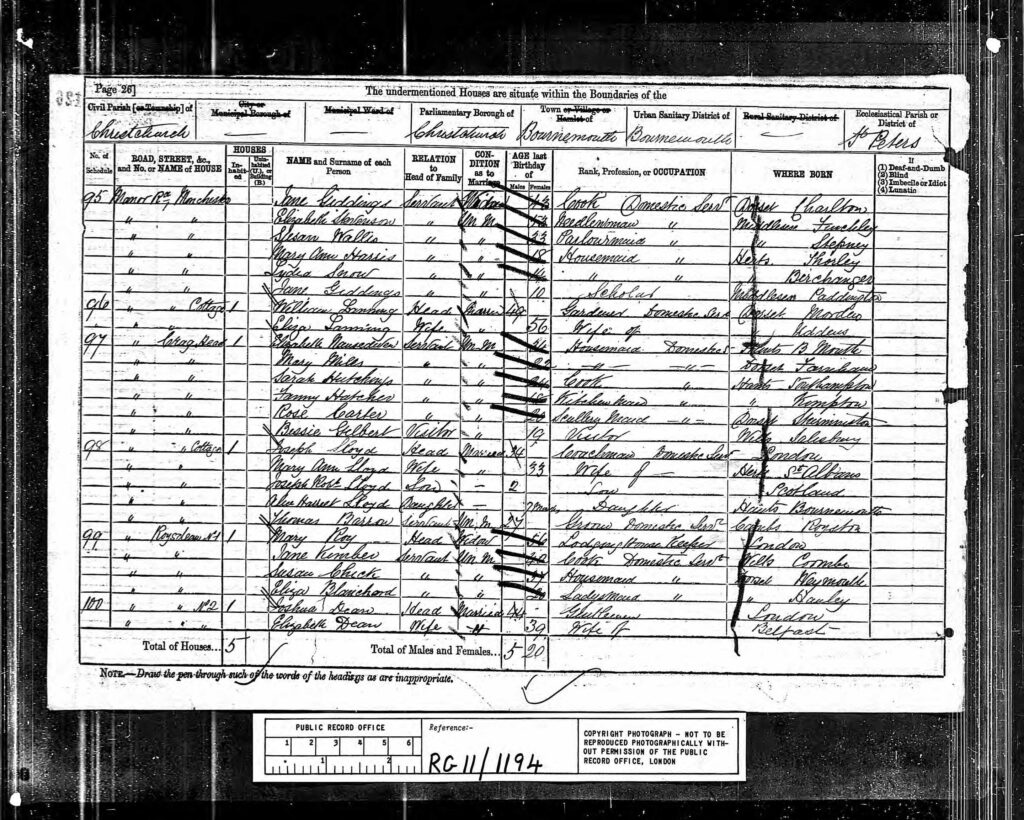 Page 26]
The undermentioned Houses are situate within the Boundaries of the
Civil Parish [or Township] of
City or Municipal Borough of
Municipal Ward of
Parliamentary Borough of
Town or Village or Hamlet of
Urban Sanitary District of
Rural Sanitary District of
Ecclesiastical Parish or District of
Christchurch — — Christchurch Bournemouth Bournemouth — St Peters
No. of Schedule
ROAD, STREET, &c., and No. or NAME of HOUSE
HOUSES
Inhabited
Uninhabited (U.), or Building (B.)
NAME and Surname of each Person
RELATION to Head of Family
CONDITION as to Marriage
AGE last Birthday of
Males Females
Rank, Profession, or OCCUPATION
WHERE BORN
If
(1) Deaf-and-Dumb
(2) Blind
(3) Imbecile or Idiot
(4) Lunatic
95 Manor Rd Jane Giddings Servant Widow Cook Domestic Servt Dorset Charlton
" " Elizabeth " Un M Needlewoman " Middlesex Finchley
" " Susan Wallis " " 33 Parlourmaid " " Stepney
" " Mary Ann Harris " " 18 Housemaid " Herts
" " Lydia Snow " " " " " Berchanger
" " Jane Giddings " " 10 Scholar Middlesex Paddington
96 " " Cottage 1 William Lanning Head Gardener Domestic Serv Dorset Morden
" " Eliza Lanning Wife " 56 Wife of "
97 " Crag Head 1 Elizabeth Servant Un M Housemaid Domestic S Hants B. Mouth
" " Mary Miles " " —"— —"— Dorset
" " Sarah Hutchings " " Cook " Hants Southampton
" " Fanny Hatcher " " Kitchen Maid " "
" " Rose Carter " " 20 Scullery Maid —"— Dorset
" " Bessie Gilbert Visitor " 19 Visitor Wilts Salisbury
98 " " Cottage 1 Joseph Lloyd Head Married 34 Coachman Domestic Ser London
" " Mary Ann Lloyd Wife " 33 Wife of — Herts St Albans
" " Joseph Robt Lloyd Son — 2 Son Scotland
" " Harriet Lloyd Daughter — 7 Months Daughter Hants Bournemouth
" " Thomas Barrow Servant Un. M. 27 Groom Domestic Servt Cambs Royston
99 " Roysdean No 1 1 Mary Roy Head Widow Lodging House Keeper London
" " Jane Kember Servant Un M Cook Domestic Servt Wilts Coombe
" " Susan Chick " " Housemaid " Dorset Weymouth
" " Eliza Blanchard " " Ladysmaid " "
100 " " No 2 1 Joshua Dean Head Married 44 Gentleman London
" " Elizabeth Dean Wife " 39 Wife of Belfast
Total of Houses... 5
Total of Males and Females... 5 20
NOTE.—Draw the pen through such of the words of the headings as are inappropriate.
PUBLIC RECORD OFFICE
1 2 3 4 5 6
1 2
Reference:-
RG 11/1194
COPYRIGHT PHOTOGRAPH - NOT TO BE
REPRODUCED PHOTOGRAPHICALLY WITH-
OUT PERMISSION OF THE PUBLIC
RECORD OFFICE, LONDON